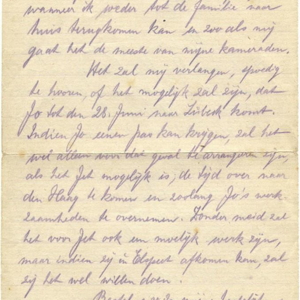 wanneer ik weder tot de familie naar
huis terugkomen kan en zoo als mij
gaat het de meeste van mijne kameraden.
Het zal mij verlangen, spoedig
te hooren, of het mogelijk zal zijn, dat
Jo tot den 28. Juni naar Lübeck komt.
Indien Jo eenen pas kan krijgen, zal het
wel alleen voor dat geval te arrangeren zijn,
als het Jet mogelijk is, de tijd over naar
den Haag te komen en zoolang Jo's werk-
zaamheden te overnemen. Zonder maid zal
het voor Jet ook een moeilijk werk zijn,
maar indien zij in Elspeet afkomen kan, zal
zij het wel willen doen.